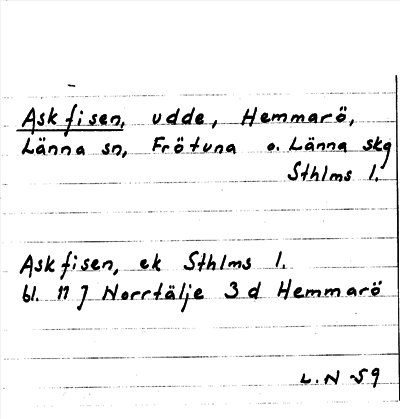 Askfisen, udde, Hemmarö,
Länna sn, Frötuna o. Länna skg
Sthlms l.
Askfisen, ek Sthlms l.
bl. 11 J Norrtälje 3d Hemmarö
L.N 59